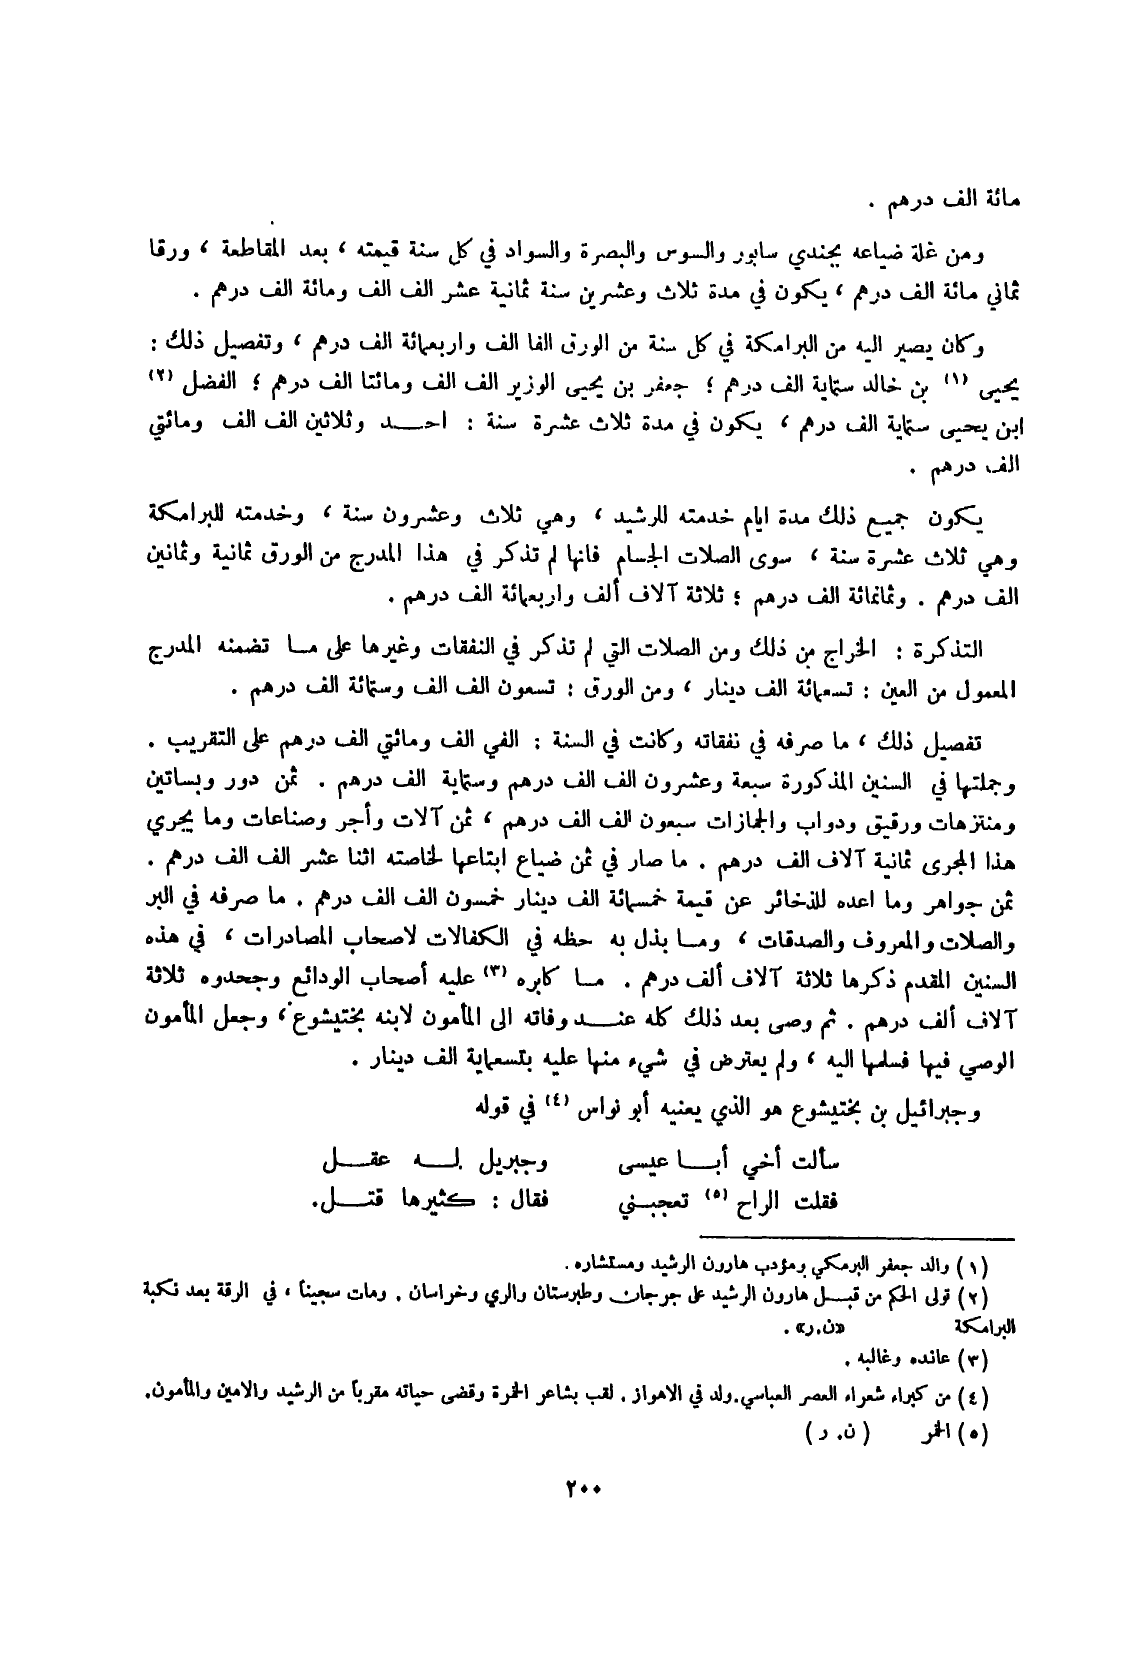 مائة الف درهم .
ومن غلة ضياعه بجندي سابور والسوس والبصرة والسواد في كل سنة قيمته ، بعد المقاطعة ، ورقا
ثماني مائة الف درهم ، يكون في مدة ثلاث وعشرين سنة ثمانية عشر الف الف ومائة الف درهم .
وكان يصير اليه من البرامكة في كل سنة من الورق الفا الف واربعمائة الف درهم ، وتفصيل ذلك :
يحيى (١) بن خالد ستماية الف درهم ؛ جعفر بن يحيى الوزير الف الف ومائتا الف درهم ؛ الفضل (٢)
ابن يحيى ستماية الف درهم ، يكون في مدة ثلاث عشرة سنة : احد وثلاثين الف الف ومائتي
الف درهم .
يكون جميع ذلك مدة ايام خدمته للرشيد ، وهي ثلاث وعشرون سنة ، وخدمته للبرامكة
وهي ثلاث عشرة سنة ، سوى الصلات الجسام فانها لم تذكر في هذا المدرج من الورق ثمانية وثمانين
الف درهم . وثمانمائة الف درهم ؛ ثلاثة آلاف ألف واربعمائة الف درهم .
التذكرة : الخراج من ذلك ومن الصلات التي لم تذكر في النفقات وغيرها على ما تضمنه المدرج
المعمول من العين : تسعمائة الف دينار ، ومن الورق : تسعون الف الف وستمائة الف درهم .
تفصيل ذلك ، ما صرفه في نفقاته وكانت في السنة : الفي الف ومائتي الف درهم على التقريب .
وجملتها في السنين المذكورة سبعة وعشرون الف الف درهم وستماية الف درهم . ثمن دور وبساتين
ومنتزهات ورقيق ودواب والجمازات سبعون الف الف درهم ، ثمن آلات وأجر وصناعات وما يجري
هذا المجرى ثمانية آلاف الف درهم . ما صار في ثمن ضياع ابتاعها لخاصته اثنا عشر الف الف درهم .
ثمن جواهر وما اعده للذخائر عن قيمة خمسمائة الف دينار خمسون الف الف درهم . ما صرفه في البر
والصلات والمعروف والصدقات ، وما بذل به حظه في الكفالات لاصحاب المصادرات ، في هذه
السنين المقدم ذكرها ثلاثة آلاف ألف درهم . ما كابره (٣) عليه أصحاب الودائع وجحدوه ثلاثة
آلاف ألف درهم . ثم وصى بعد ذلك كله عند وفاته الى المأمون لابنه بختيشوع ، وجعل المأمون
الوصي فيها فسلمها اليه ، ولم يعترض في شيء منها عليه بتسعماية الف دينار .
وجبرائيل بن بختيشوع هو الذي يعنيه أبو نواس (٤) في قوله
سألت أخي أبا عيسى وجبريل له عقل
فقلت الراح (٥) تعجبني فقال : كثيرها قتل.
(١) والد جعفر البرمكي ومؤدب هارون الرشيد ومستشاره .
(٢) تولى الحكم من قبل هارون الرشيد على جرجان وطبرستان والري وخراسان . ومات سجيناً ، في الرقة بعد نكبة
البرامكة «ن.ر» .
(٣) عانده وغالبه .
(٤) من كبراء شعراء العصر العباسي.ولد في الاهواز . لقب بشاعر الخمرة وقضى حياته مقرباً من الرشيد والامين والمأمون.
(٥) الخمر (ن. ر)
٢٠٠